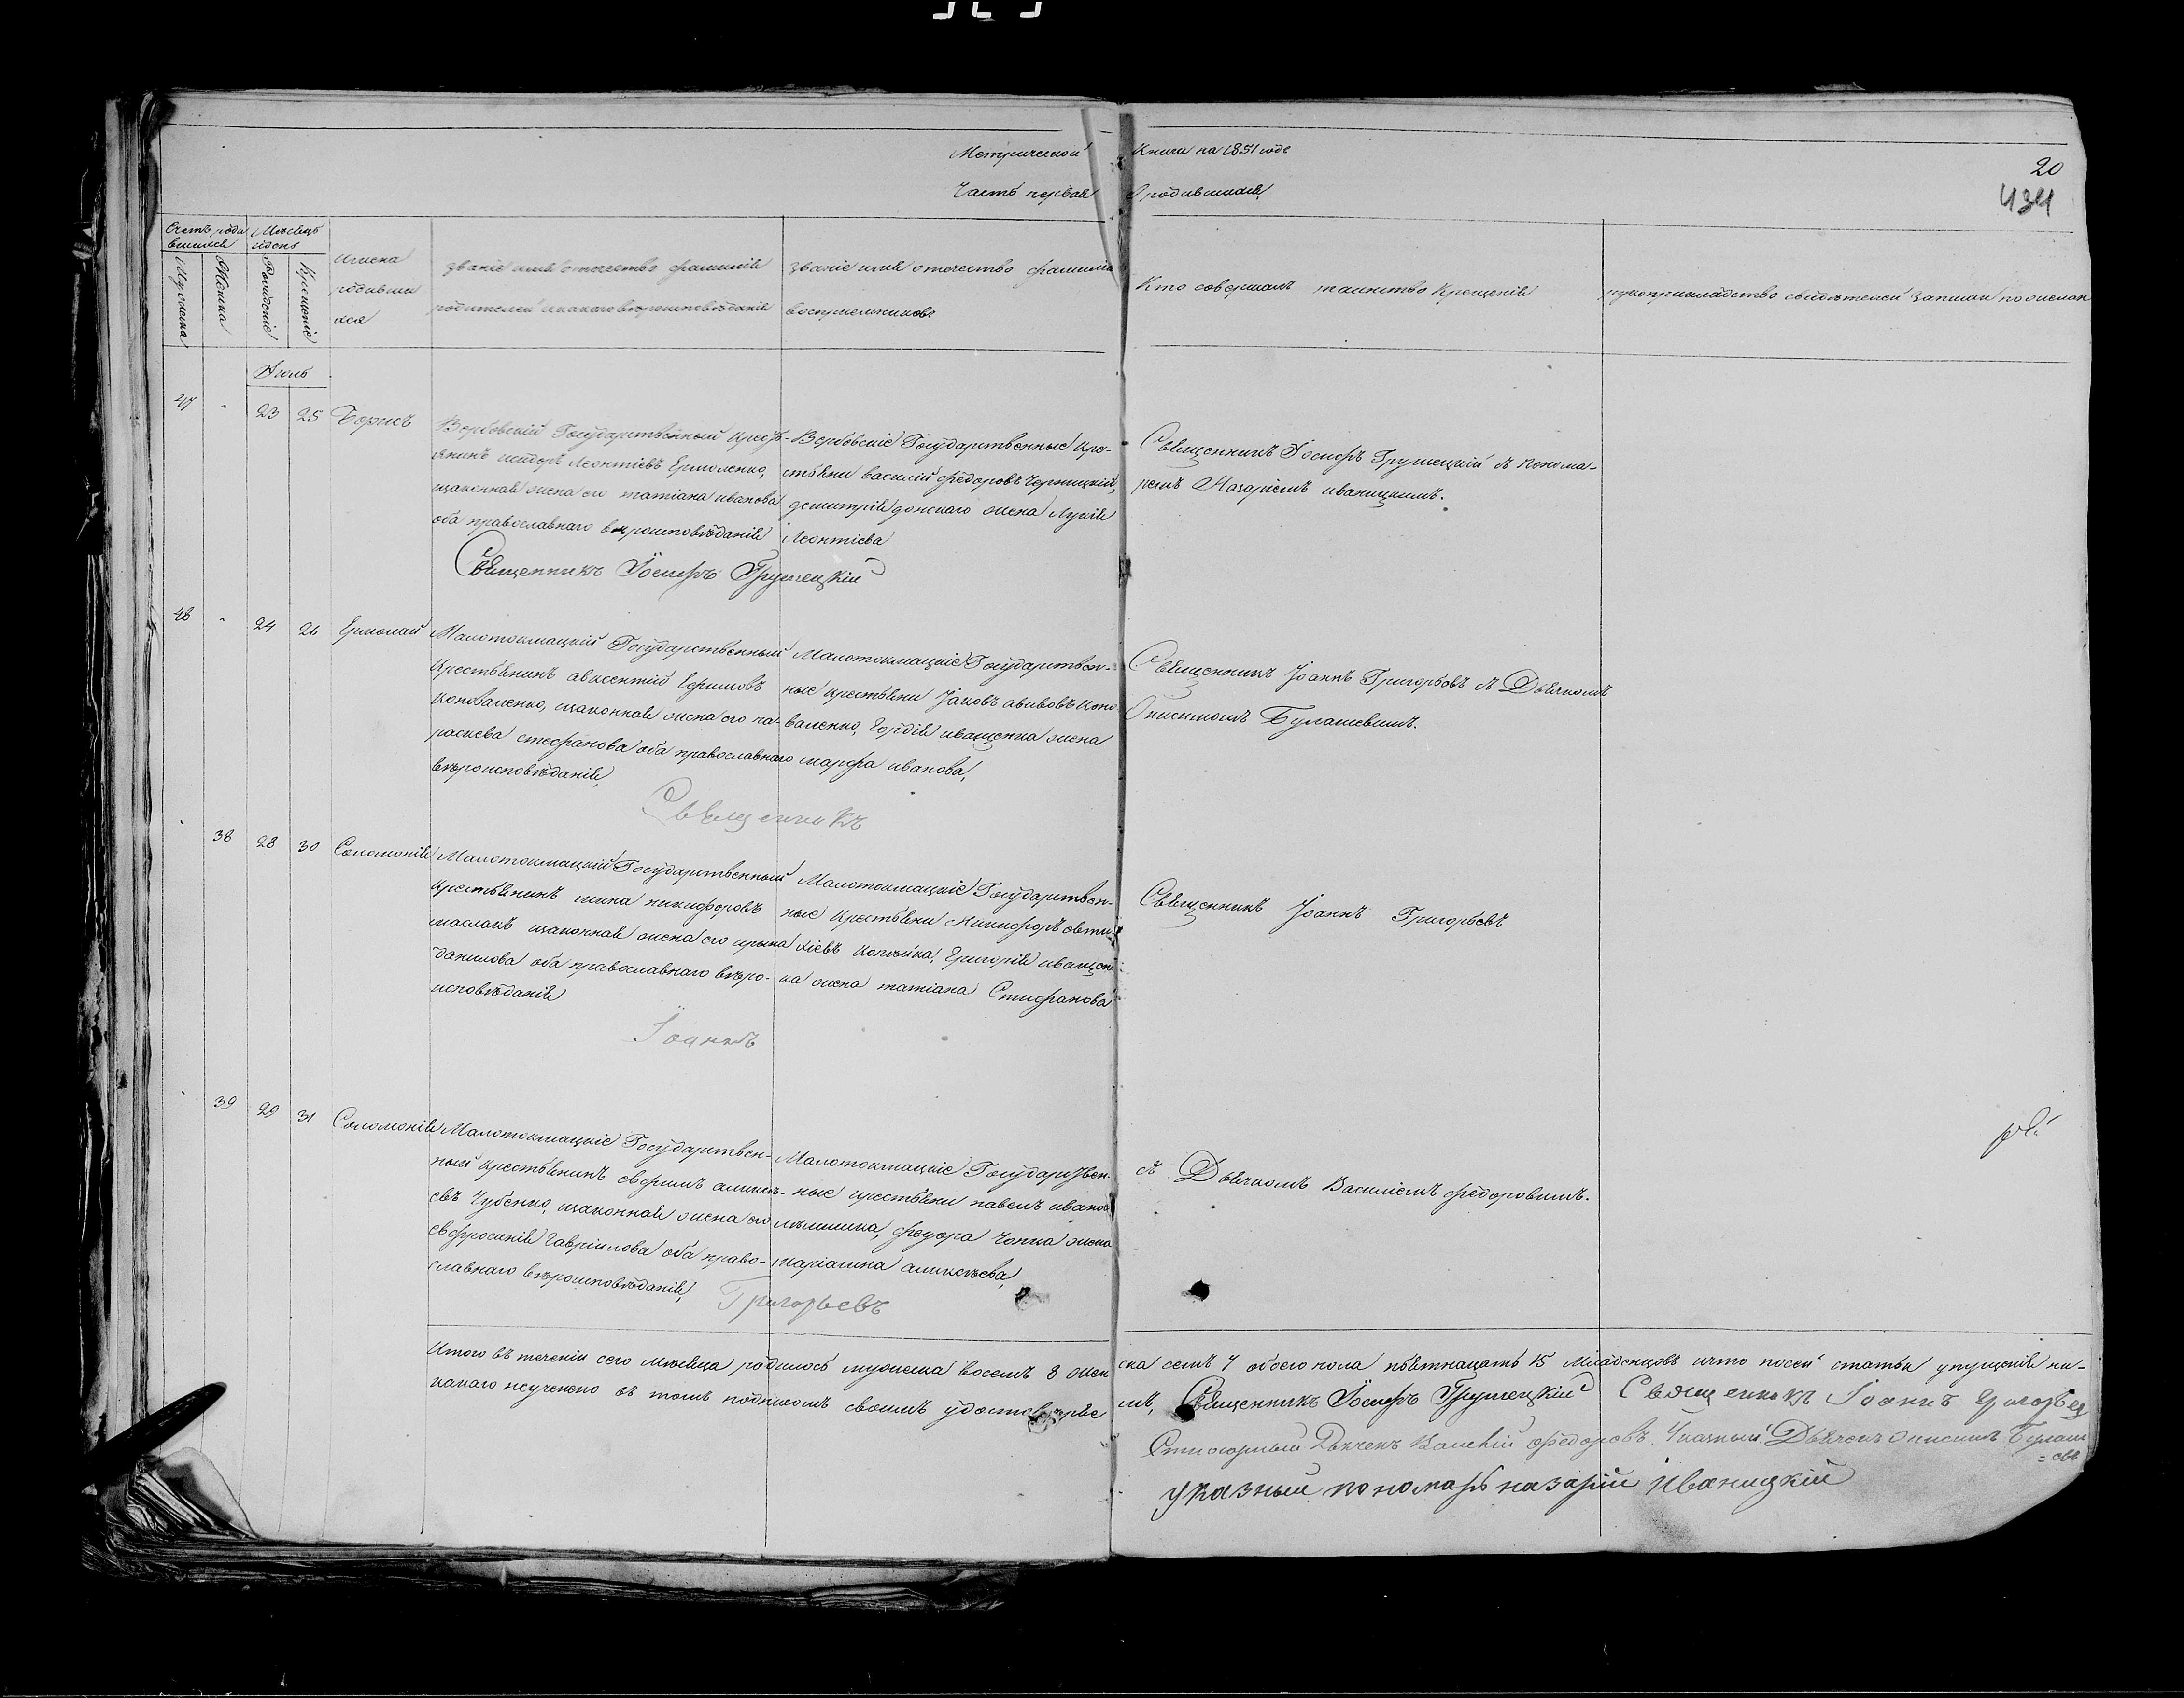 Метрической Книги на 1851 годъ
20
Часть первая О родившихся
434
Счетъ роди
вшихся
Мужеска
Женска
Мѣсяцъ
и день
Рожденіе
Крещеніе
Имена
родивши
хся
званіе имя отечество фамилія
родителей и какого вѣроисповѣданія
званіе имя отечество фамилія
воспріемниковъ
Кто совершалъ таинство Крещенія
рукоприкладство свидѣтелей записи по желан
Іюль
47 23 25 Борисъ
Вербовскій Государственный крестъ-
янинъ Леонтіевъ Ермоленко,
изаконная жена его татіана иванова
оба православнаго вѣроисповѣданія
Вербовскіе Государственные кре-
стьяне василій федоровъ Черницкій,
дмитрія донскаго жена Лукія
Леонтіева
Священникъ Іосифъ Грушецкій съ понома-
ремъ Назаріемъ иваницкимъ.
Священникъ Іосифъ Грушецкій
48 24 26 Ермолай
Малотокмацкій Государственный
Крестьянинъ авксентій Ефимовъ
Коноваленко, изаконная жена его па-
раскева стефанова оба православнаго
вѣроисповѣданія,
Малотокмацкіе Государствен-
ные крестьяне Іаковъ Коно-
валенко, Гордія иващенка жена
марфа иванова,
Священникъ Іоаннъ Григорьевъ съ Дьячкомъ
Онисимомъ Булашевымъ.
Священникъ
38 28 30 Соломонія
Малотокмацкій Государственный
крестьянинъ мина никифоровъ
маслакъ изаконная жена его ирина
данилова оба православнаго вѣро-
исповѣданія
Малотокмацкіе Государствен-
ные крестьяне Никифоръ евти-
хіевъ Григорія иващен-
ка жена татіана Стифанова
Священникъ Іоаннъ Григорьевъ
Іоаннъ
39 29 31 Соломонія
Малотокмацкіе Государствен-
ный крестьянинъ ефимъ аликсѣ-
евъ Чубенко, изаконная жена его
евфросинія Гавріилова оба право-
славнаго вѣроисповѣданія,
Малотокмацкіе Государствен-
ные крестьяне павелъ иванов
федора жена
маріамна аликсѣева,
съ Дьячкомъ Василіемъ федоровымъ.
Григорьевъ
Итого въ теченіи сего мѣсяца родилось мужеска восемъ 8 жен
ска семъ 7 обоего пола пьятнацать 15 младенцовъ ичто посей статьи упущенія ни-
какаго неучинено въ томъ подписомъ своимъ удостовѣряе
мъ, Священникъ Іосифъ Грушецкій Священникъ Іоаннъ Григорьев
Дьячекъ федоровъ. Указный Дьячекъ Онисимъ Булаш
=евъ
указный пономарь назарій Иваницкій